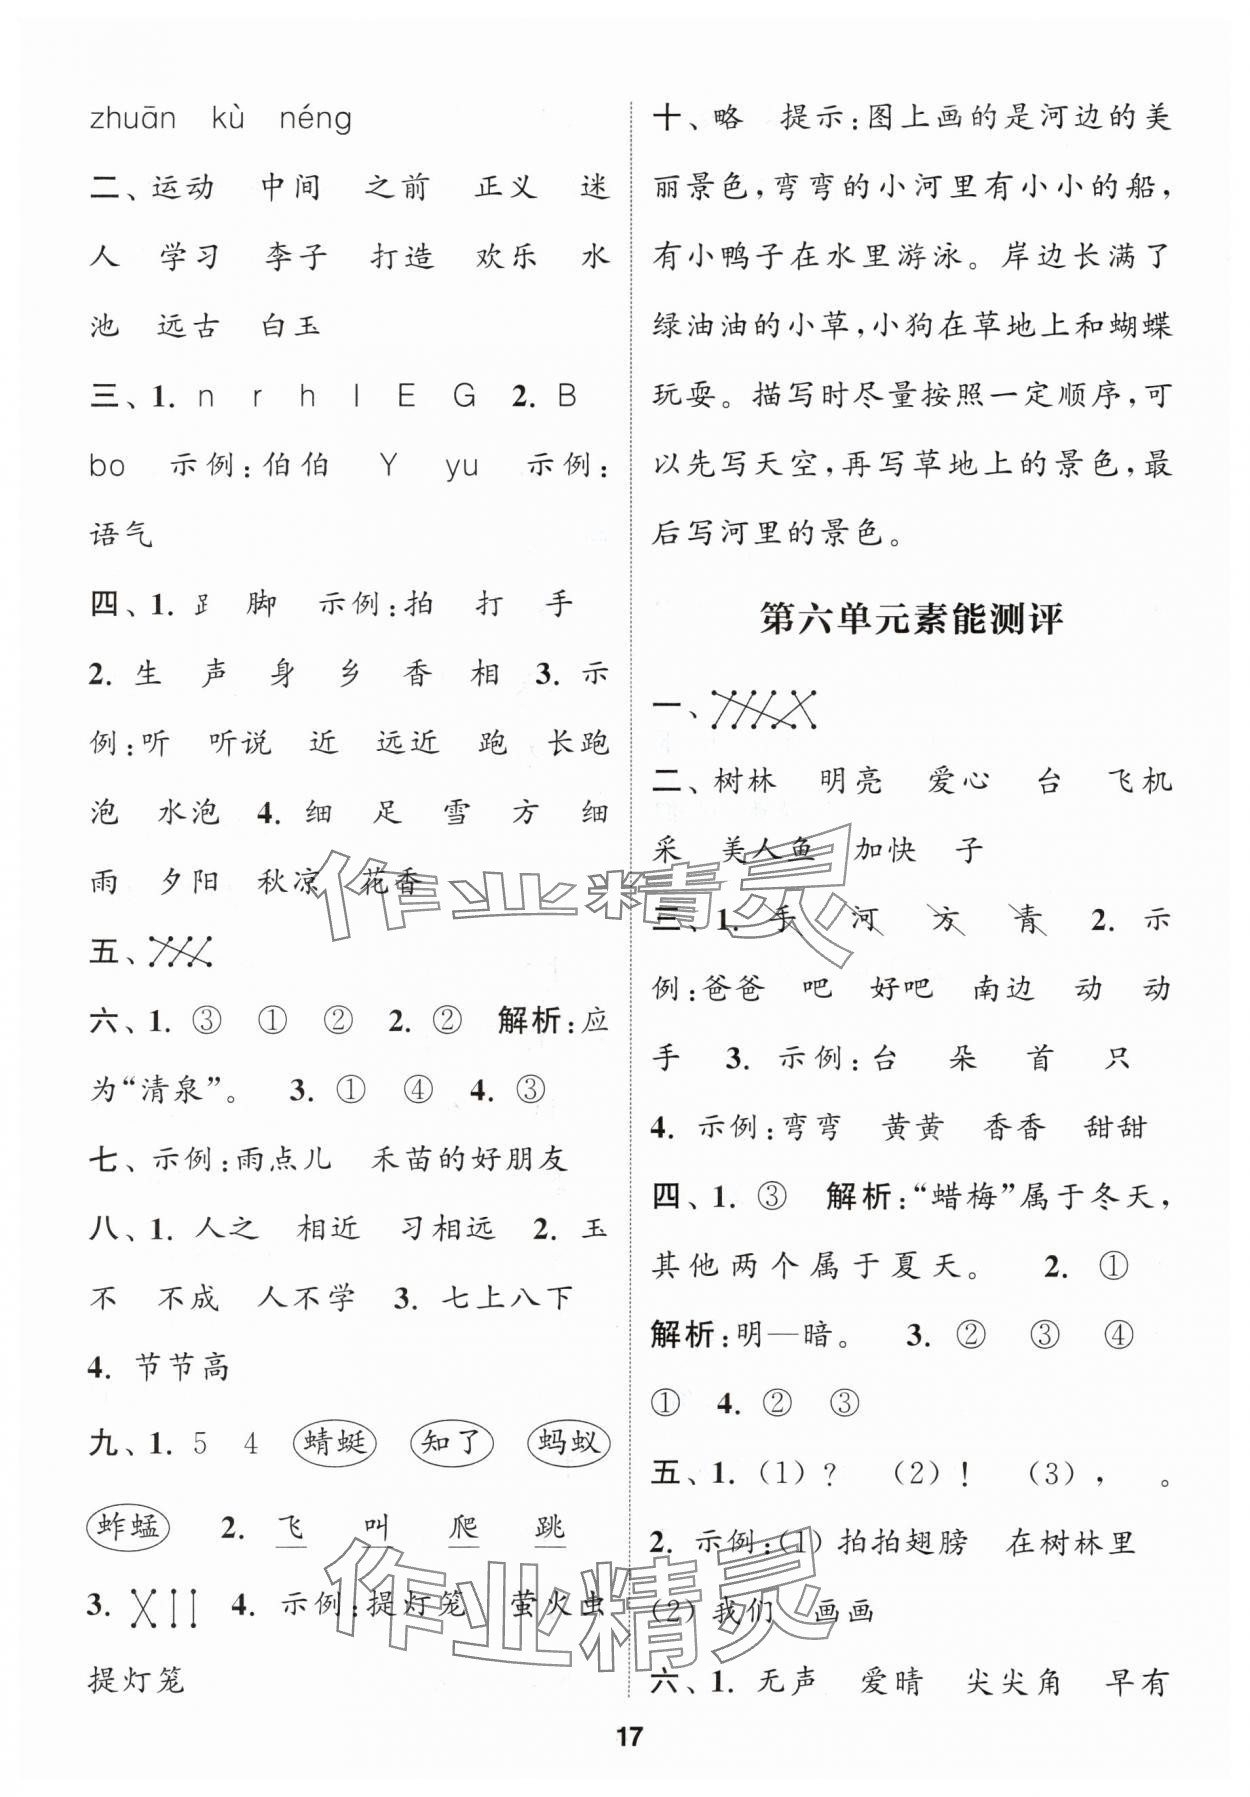 zhuān kù néng
二、运动 中间 之前 正义 迷
人 学习 李子 打造 欢乐 水
池 远古 白玉
三、1. n r h l E G 2. B
bo 示例:伯伯 Y yu 示例:
语气
四、1. ⻊ 脚 示例:拍 打 手
2. 生 声 身 乡 香 相 3. 示
例:听 听说 近 远近 跑 长跑
泡 水泡 4. 细 足 雪 方 细
雨 夕阳 秋凉 花香
五、
六、1. ③ ① ② 2. ② 解析:应
为“清泉”。 3. ① ④ 4. ③
七、示例:雨点儿 禾苗的好朋友
八、1. 人之 相近 习相远 2. 玉
不 不成 人不学 3. 七上八下
4. 节节高
九、1. 5 4 蜻蜓 知了 蚂蚁
蚱蜢 2. 飞 叫 爬 跳
3. 4. 示例:提灯笼 萤火虫
提灯笼
十、略 提示:图上画的是河边的美
丽景色,弯弯的小河里有小小的船,
有小鸭子在水里游泳。岸边长满了
绿油油的小草,小狗在草地上和蝴蝶
玩耍。描写时尽量按照一定顺序,可
以先写天空,再写草地上的景色,最
后写河里的景色。
第六单元素能测评
一、
二、树林 明亮 爱心 台 飞机
采 美人鱼 加快 子
三、1. 手 河 方 青 2. 示
例:爸爸 吧 好吧 南边 动 动
手 3. 示例:台 朵 首 只
4. 示例:弯弯 黄黄 香香 甜甜
四、1. ③ 解析:“蜡梅”属于冬天,
其他两个属于夏天。 2. ①
解析:明—暗。 3. ② ③ ④
① 4. ② ③
五、1. (1)? (2)! (3), 。
2. 示例:(1)拍拍翅膀 在树林里
(2)我们 画画
六、1. 无声 爱晴 尖尖角 早有
17
作业精灵
作业精灵